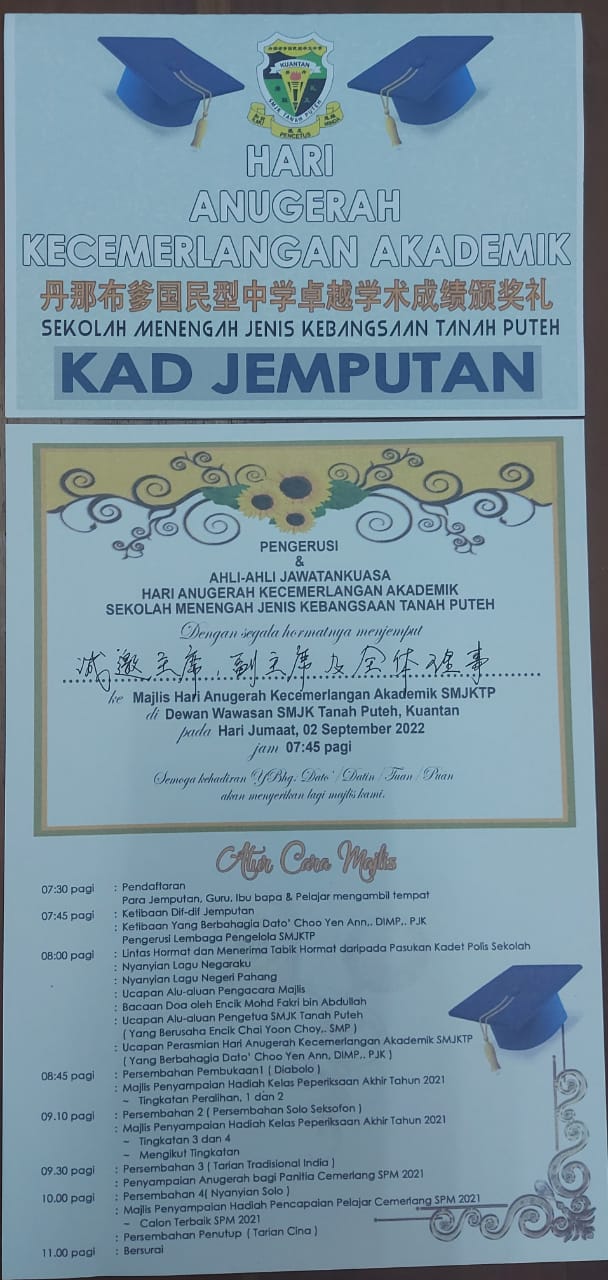 KUANTAN
SMJK TANAH PUTEH
PENCETUS
HARI
ANUGERAH
KECEMERLANGAN AKADEMIK
丹那布爹国民型中学卓越学术成绩颁奖礼
SEKOLAH MENENGAH JENIS KEBANGSAAN TANAH PUTEH
KAD JEMPUTAN
PENGERUSI
&
AHLI-AHLI JAWATANKUASA
HARI ANUGERAH KECEMERLANGAN AKADEMIK
SEKOLAH MENENGAH JENIS KEBANGSAAN TANAH PUTEH
Dengan segala hormatnya menjemput
诚邀主席,副主席及全体理事
ke Majlis Hari Anugerah Kecemerlangan Akademik SMJKTP
di Dewan Wawasan SMJK Tanah Puteh, Kuantan
pada Hari Jumaat, 02 September 2022
jam 07:45 pagi
Semoga kehadiran YBhg. Dato'/Datin/Tuan/Puan
akan menyerikan lagi majlis kami.
Atur Cara Majlis
07:30 pagi : Pendaftaran
Para Jemputan, Guru, Ibu bapa & Pelajar mengambil tempat
07:45 pagi : Ketibaan Dif-dif Jemputan
: Ketibaan Yang Berbahagia Dato' Choo Yen Ann,. DIMP,. PJK
Pengerusi Lembaga Pengelola SMJKTP
08:00 pagi : Lintas Hormat dan Menerima Tabik Hormat daripada Pasukan Kadet Polis Sekolah
: Nyanyian Lagu Negaraku
: Nyanyian Lagu Negeri Pahang
: Ucapan Alu-aluan Pengacara Majlis
: Bacaan Doa oleh Encik Mohd Fakri bin Abdullah
: Ucapan Alu-aluan Pengetua SMJK Tanah Puteh
( Yang Berusaha Encik Chai Yoon Choy,. SMP )
: Ucapan Perasmian Hari Anugerah Kecemerlangan Akademik SMJKTP
( Yang Berbahagia Dato' Choo Yen Ann, DIMP,. PJK )
08:45 pagi : Persembahan Pembukaan1 ( Diabolo )
: Majlis Penyampaian Hadiah Kelas Peperiksaan Akhir Tahun 2021
~ Tingkatan Peralihan, 1 dan 2
09.10 pagi : Persembahan 2 ( Persembahan Solo Seksofon )
: Majlis Penyampaian Hadiah Kelas Peperiksaan Akhir Tahun 2021
~ Tingkatan 3 dan 4
~ Mengikut Tingkatan
09.30 pagi : Persembahan 3 ( Tarian Tradisional India )
: Penyampaian Anugerah bagi Panitia Cemerlang SPM 2021
10.00 pagi : Persembahan 4( Nyanyian Solo )
: Majlis Penyampaian Hadiah Pencapaian Pelajar Cemerlang SPM 2021
~ Calon Terbaik SPM 2021
: Persembahan Penutup ( Tarian Cina )
11.00 pagi : Bersurai